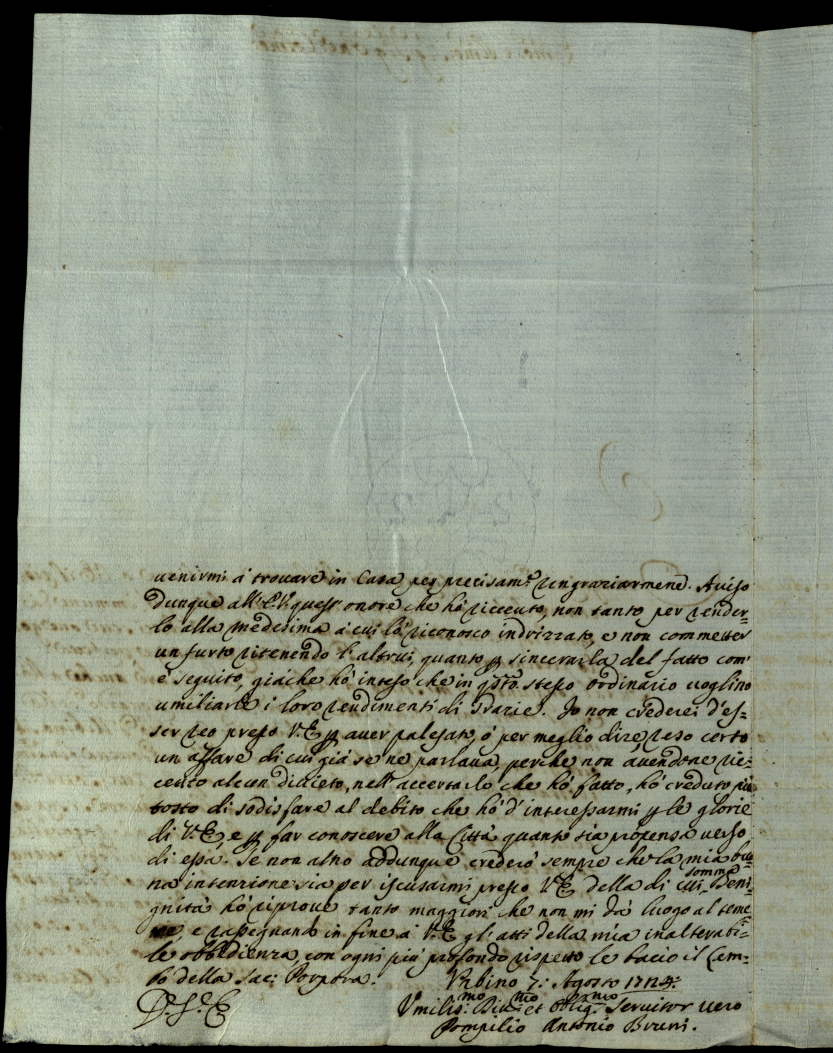 uenirmi à trouare in Casa per precisam.te ringraziarmene. Auiso
dunque all'E.V. quest'onore che hò riceuto, non tanto per render=
lo alla medesima à cui lo riconosco indrizzato, e non commetter
un furto ritenendo l'altrui, quanto p sincerarla del fatto com'
è seguito, giache hò inteso che in q.sto stesso ordinario uoglino
umiliarle i loro rendimenti di Grazie. Io non crederei d'es=
ser reo presso V.E. p auer palesato, ò per meglio dire reso certo
un affare di cui già se ne parlaua, perche non auendone ri=
ceuto alcun diuieto, nell'accertarlo che hò fatto, hò creduto più
tosto di sodisfare al debito che hò d'interessarmi p le glorie
di V.E. e p far conoscere alla Città quanto sia propensa uerso
di essa. Se non altro addunque crederò sempre che la mia buo=
na intenzione sia per iscusarmi presso V.E. della di cui somma Beni=
gnità hò riproue tanto maggiori che non mi dà luogo al teme=
re e rassegnando in fine à V.E. gli atti della mia inalterabi=
le obbedienza con ogni più profondo rispetto le bacio il Lem=
bo della Sac: Porpora.
Urbino 7: Agosto 1724:
D. V. E.
Umilis.mo Diu.mo et Oblig.mo Seruitor uero
Pompilio Antonio Bruni.